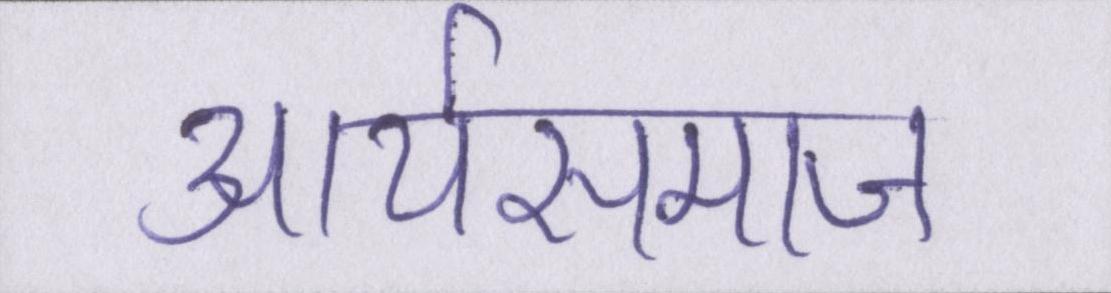 आर्यसमाज